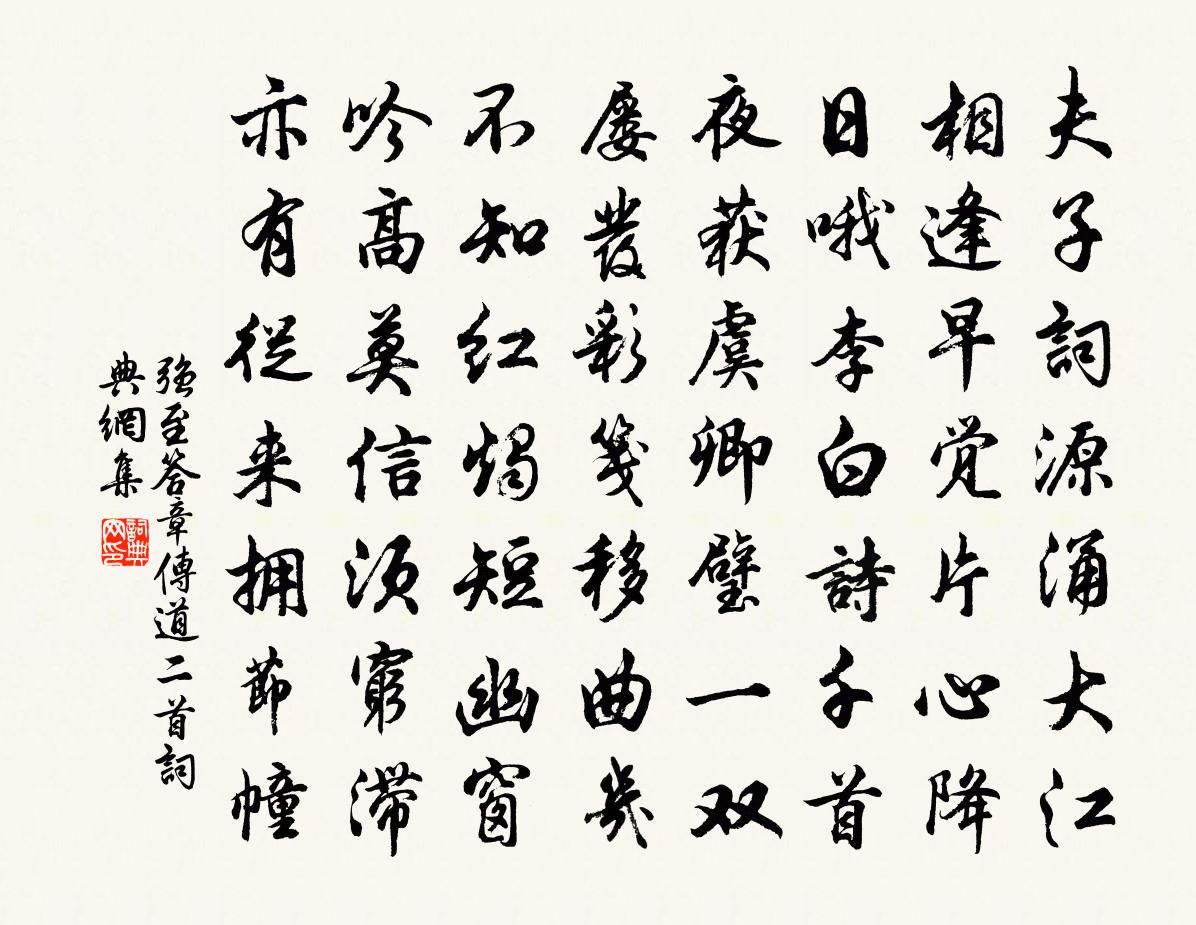 夫子詞源涌大江
相逢早觉片心降
日哦李白詩千首
夜获虞卿璧一双
屢發彩箋移曲幾
不知红燭短幽窗
吟高莫信须窮滞
亦有從来拥節幢
強至答章傳道二首詞
典網集
詞典网印